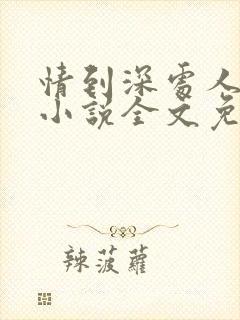 情到深处人
小说全文免
辣菠萝